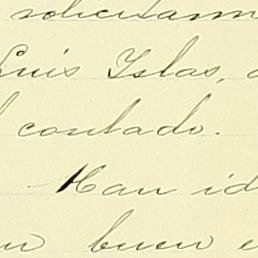 solicitamn
Luis Yslas,
contado.
Han id
buen e